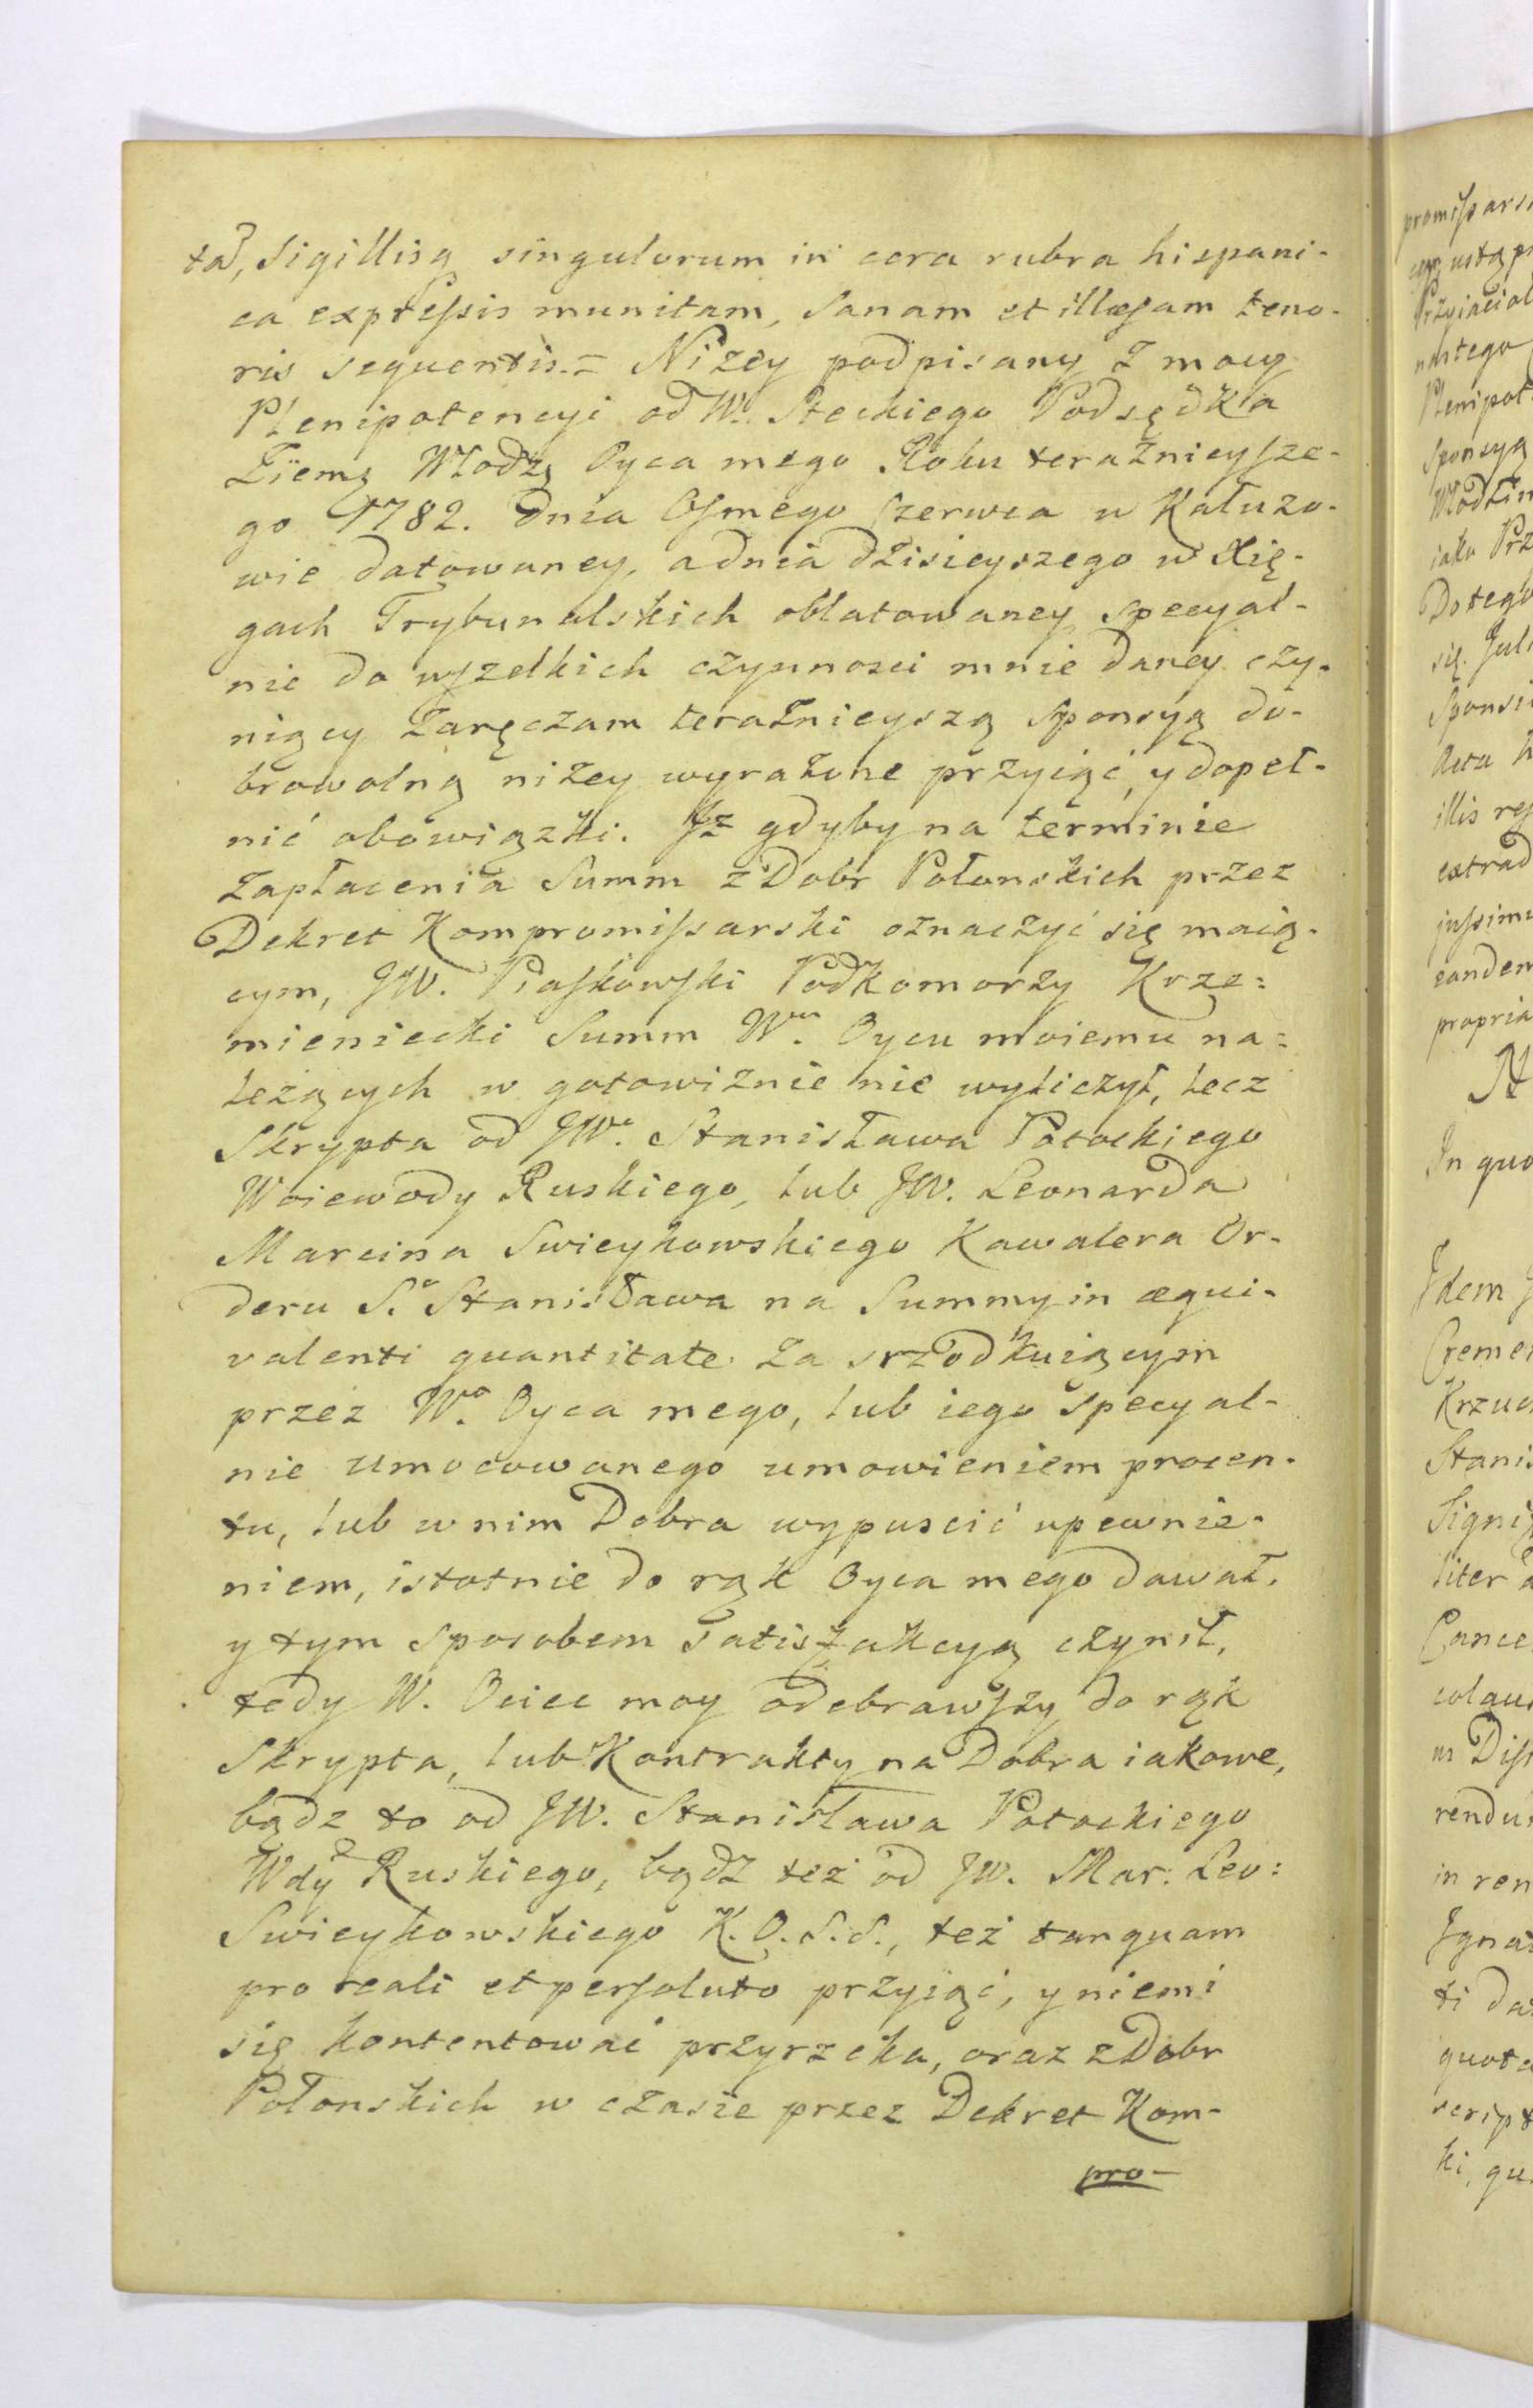 tã, Sigillisq singulorum in cera rubra hispani-
ca expreſsis munitam, Sanam et illæſam teno-
ris sequentis.= Niżey podpisany z mocy
Plenipotencyi od W. Steckiego Podsędka
Ziemę Włodzę Oyca mego Roku teraznieyſze-
go 1782. dnia Oſmego Czerwca w Kałuzo-
wie datowaney, a dnia dzisieyszego w Xię-
gach Trybunalskich oblatowaney, specyal-
nie do wſzelkich czynnosci mnie daney czy-
niący zaręczam teraznieyszą Sponsyą do-
browolną niżey wyrażone przyiąć, y dopeł-
nić obowiązki. Jż gdyby na terminie
zapłacenia Summ z Dobr Połonskich przez
Dekret Kompromiſsarski oznaczyć się maią-
cym, JW. Piaſkowſki Podkomorzy Krze=
mieniecki Summ Wmu Oycu moiemu na=
leżących w gotowiznie nie wyliczył, lecz
Skrypta od JWo Stanisława Potockiego
Woiewody Ruskiego, lub JW. Leonarda
Marcina Swieykowskiego Kawalera Or-
deru So Stanisława na Summy in æqui-
valenti quantitate za srzodkuiącym
przez Wo Oyca mego, lub iego specyal-
nie umocowanego umowieniem procen-
tu, lub w nim Dobra wypuscić upewnie-
niem, istotnie do rąk Oyca mego dawał,
y tym sposobem satisfakcyą czynił,
tedy W. Ociec moy odebrawſzy do rąk
Skrypta, lub Kontrakty na Dobra iakowe,
bądz to od JW. Stanisława Potockiego
Wdy Ruskiego, bądz też od JW. Mar. Leo=
Swieykowskiego K. O. S. S., też tanquam
pro reali et perſoluto przyiąć, y niemi
się kontentować przyrzeka, oraz z Dobr
Połonskich w czasie przez Dekret Kom-
pro-